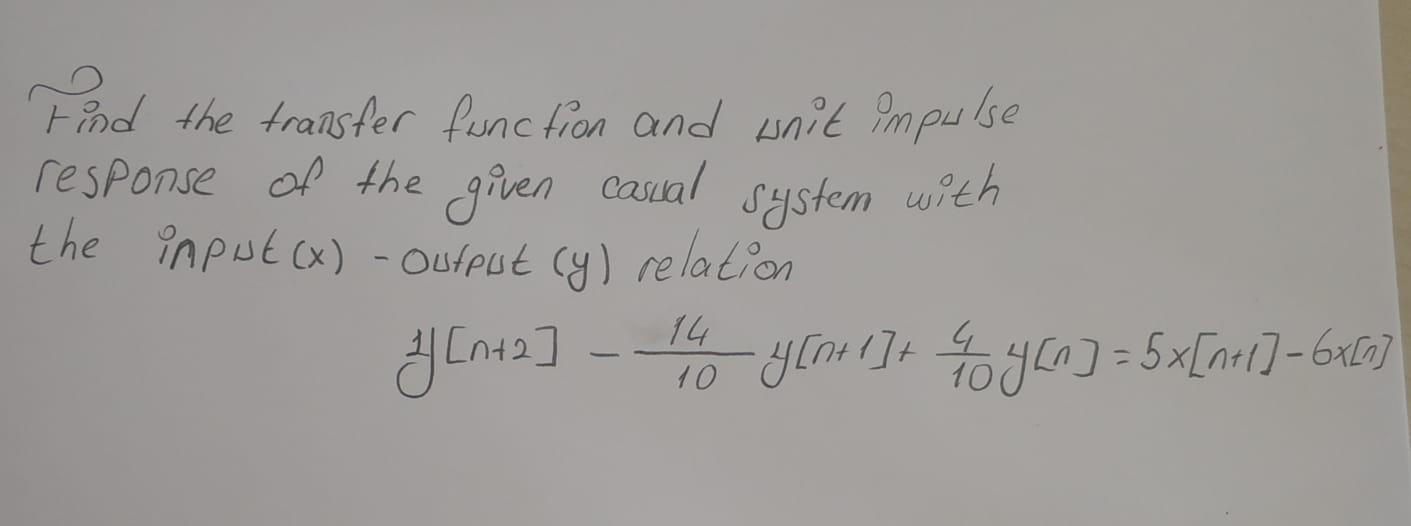 Find the transfer function and unit impulse
response of the given casual system with
the input (x) - output (y) relation
y[n+2] - 14/10 y[n+1] + 4/10 y[n] = 5x[n+1] - 6x[n]